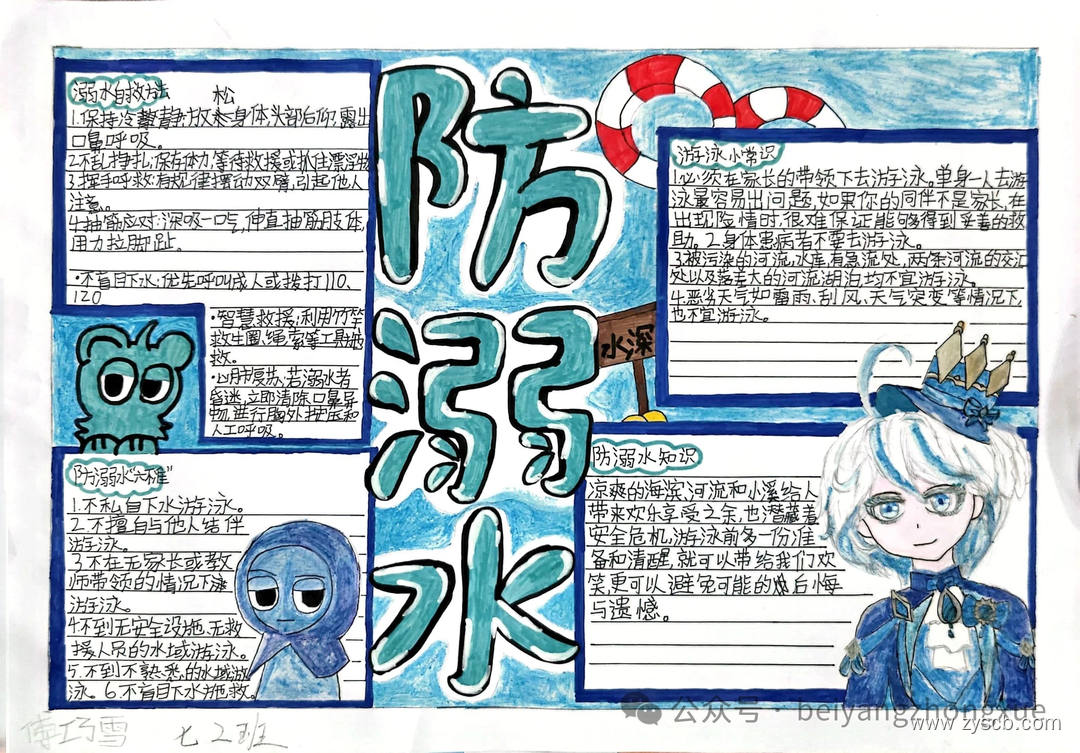 防溺水
溺水自救方法 松
1.保持冷静,放态身体,头部后仰,露出
口鼻呼吸。
2.不乱挣扎:保存体力,等待救援或抓住漂浮物
3.挥手呼救:有规律摆动双臂,引起他人
注意。
4.抽筋应对:深吸一口气,伸直抽筋肢体,
用力拉脚趾。
•不盲目下水:优生呼叫成人或拨打110、
120
•智慧救援:利用竹竿
救生圈、绳索等工具施
救。
•心肺复苏:若溺水者
昏迷,立即清除口鼻异
物,进行胸外按压和
人工呼吸。
防溺水“六不准”
1.不私自下水游泳。
2.不擅自与他人结伴
游泳。
3.不在无家长或教
师带领的情况下
游泳。
4.不到无安全设施、无救
援人员的水域游泳。
5.不到不熟悉的水域游
泳。6.不盲目下水施救。
水深
游泳小常识
1.必须在家长的带领下去游泳。单身一人去游
泳最容易出问题,如果你的同伴不是家长,在
出现险情时,很难保证能够得到妥善的救
助。2.身体患病者不要去游泳。
3.被污染的河流,水库,有急流处,两条河流的交汇
处以及落差大的河流湖泊,均不宜游泳。
4.恶劣天气如雷雨、刮风、天气突变等情况下,
也不宜游泳。
防溺水知识
凉爽的海滨,河流和小溪给人
带来欢乐享受之余,也潜藏着
安全危机,游泳前多一份准
备和清醒,就可以带给我们欢
笑,更可以避免可能的后悔
与遗憾。
巧雪 七2班
公众号 · beiyangzhongxue
www.zyscb.com